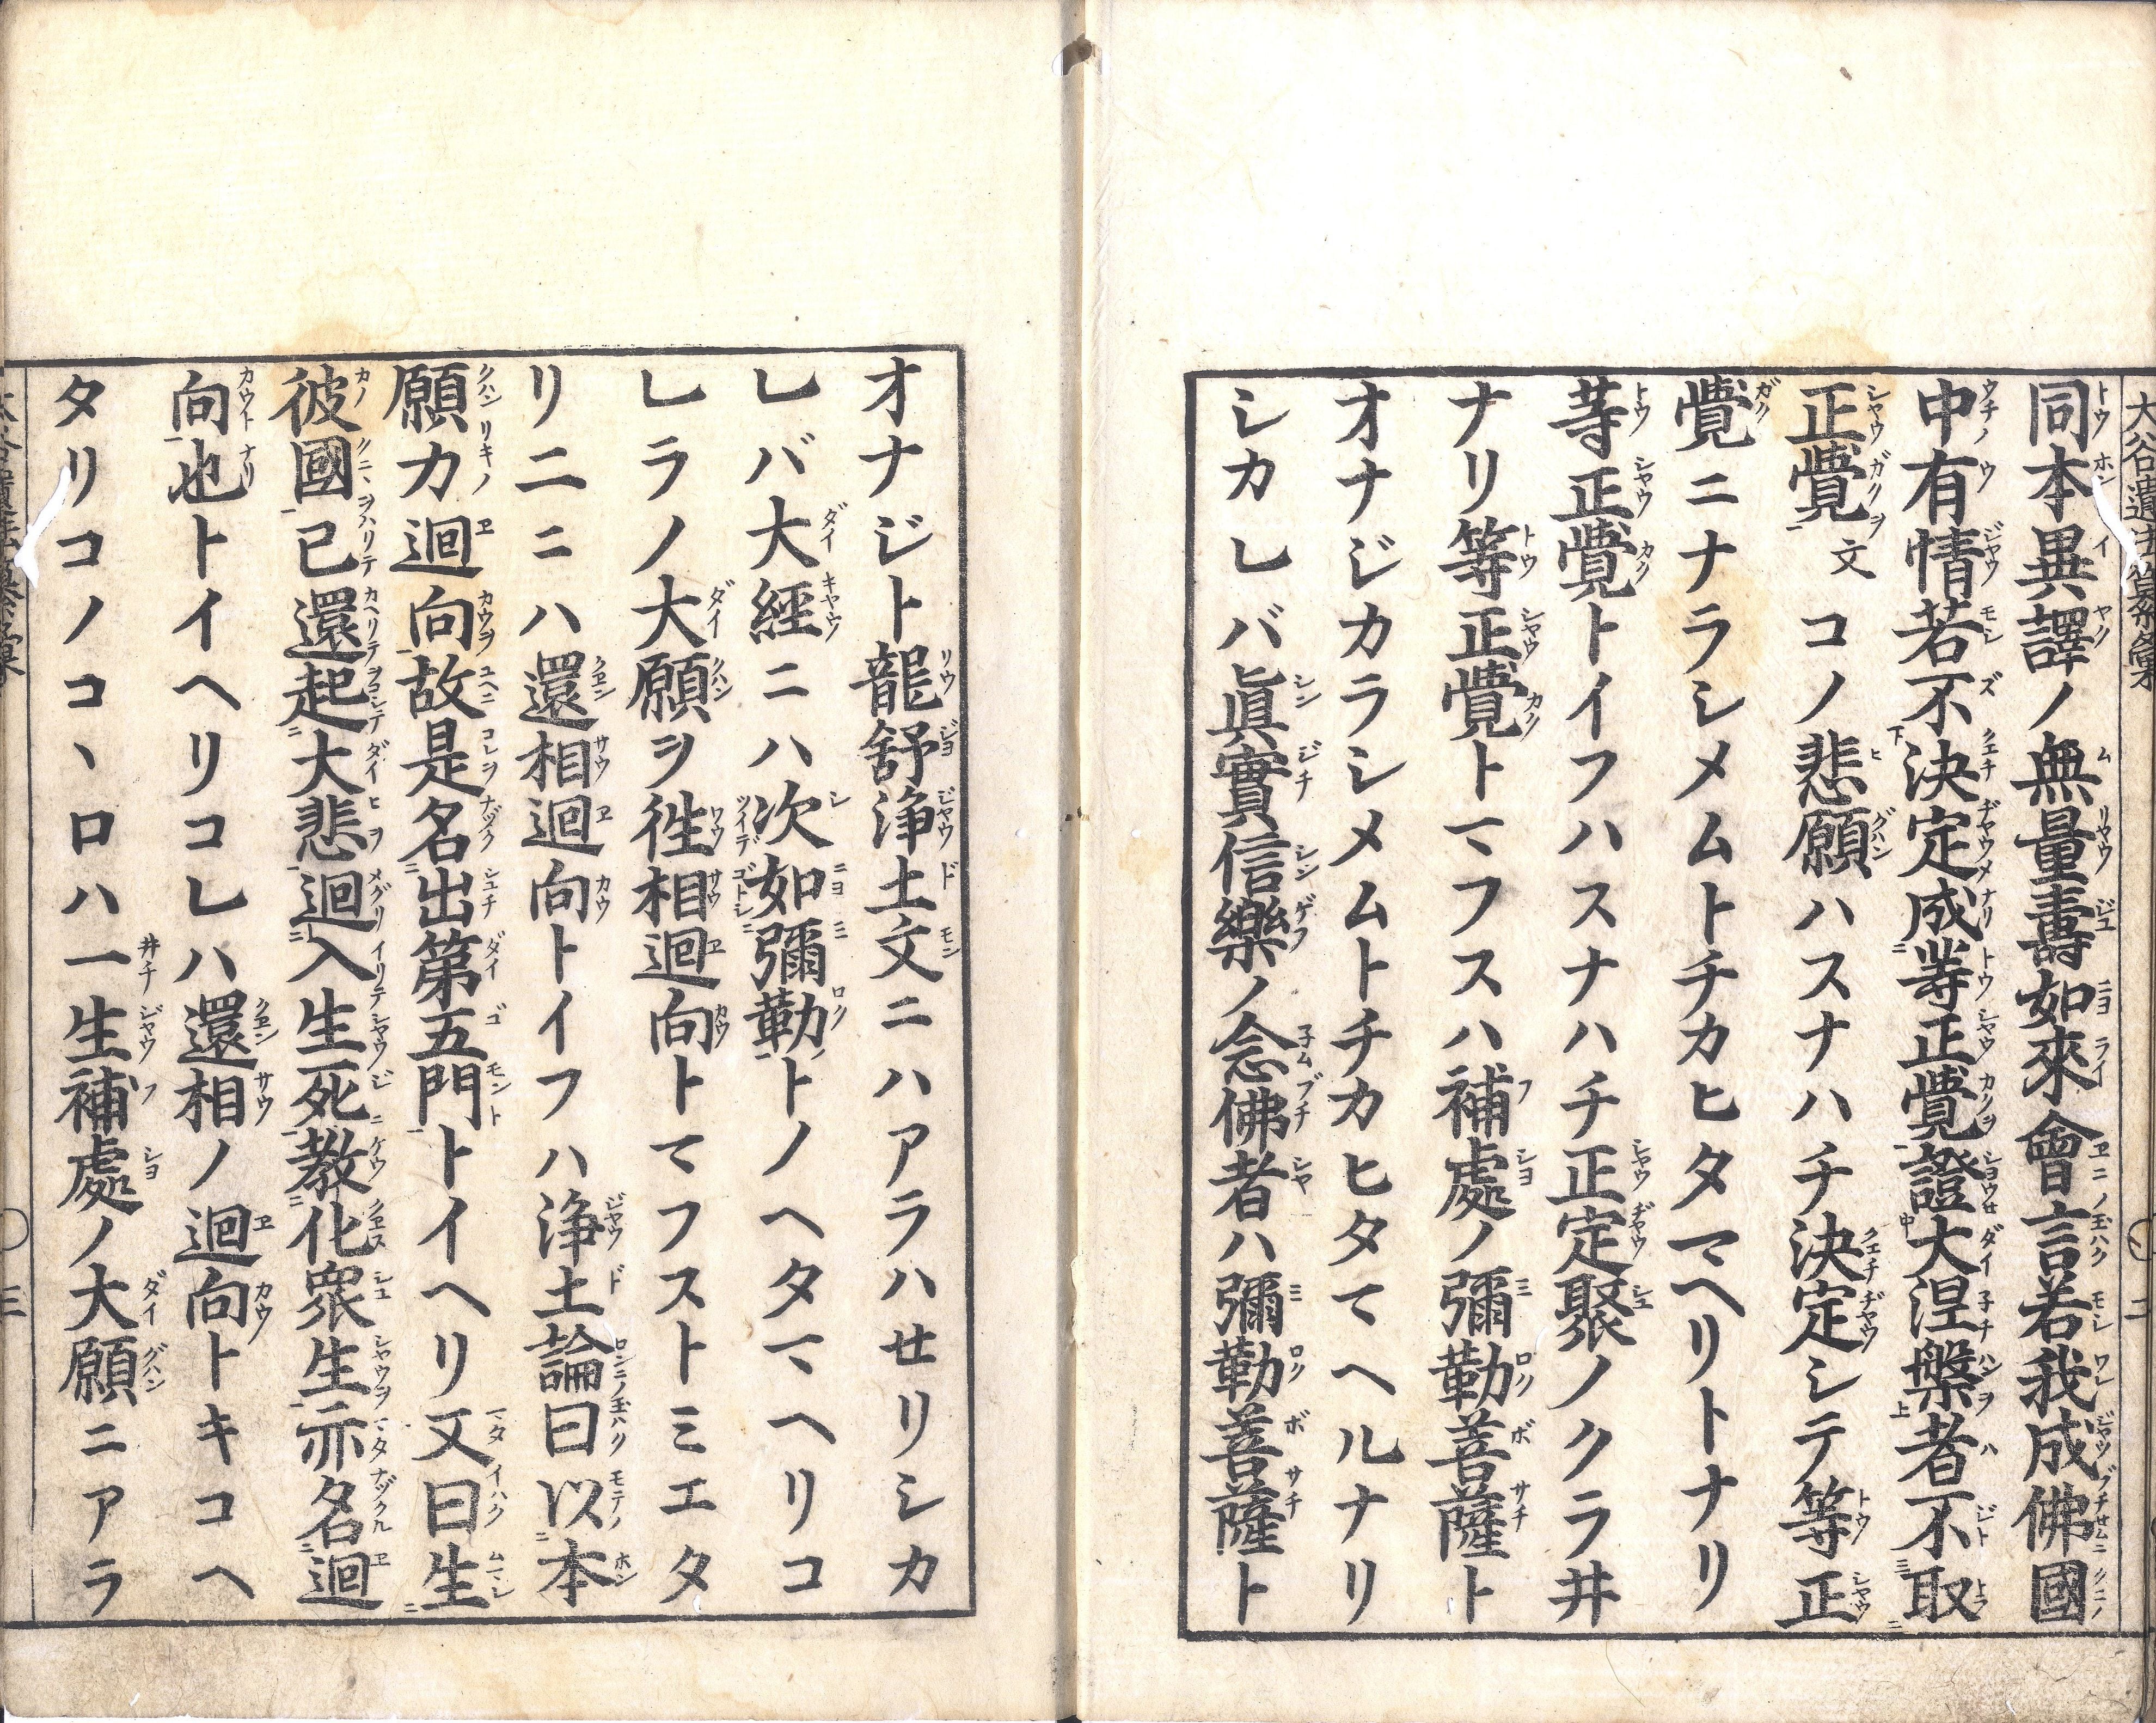 同本異譯ノ無量壽如來會言若我成佛國
中有情若不決定成等正覺證大涅槃者不取
正覺文コノ悲願ハスナハチ決定シテ等正
覺ニナラシメムトチカヒタマヘリトナリ
等正覺トイフハスナハチ正定聚ノクラ井
ナリ等正覺トマフスハ補處ノ彌勒菩薩ト
オナジカラシメムトチカヒタマヘルナリ
シカレバ眞實信樂ノ念佛者ハ彌勒菩薩ト
オナジト龍舒浄土文ニハアラハセリシカ
レバ大經ニハ次如彌勒トノヘタマヘリコ
レラノ大願ヲ徃相迴向トマフストミエタ
リ二ニハ還相迴向トイフハ浄土論曰以本
願力迴向故是名出第五門トイヘリ又曰生
彼國已還起大悲迴入生死教化衆生亦名迴
向也トイヘリコレハ還相ノ迴向トキコヘ
タリコノコヽロハ一生補處ノ大願ニアラ